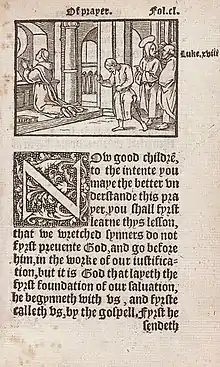 Of prayer. Fol.cl.
Luke.xviii
NOw good childrē,
to the intente you
maye the better vn
derstande this pra
yer, you shall fyrst
learne thys lesson,
that we wretched synners do not
fyrst preuente God, and go before
him, in the worke of our iustifica-
tion, but it is God that layeth the
fyrst foundation of our saluation,
he begynneth with vs, and fyrste
calleth vs, by the gospell. Fyrst he
sendeth